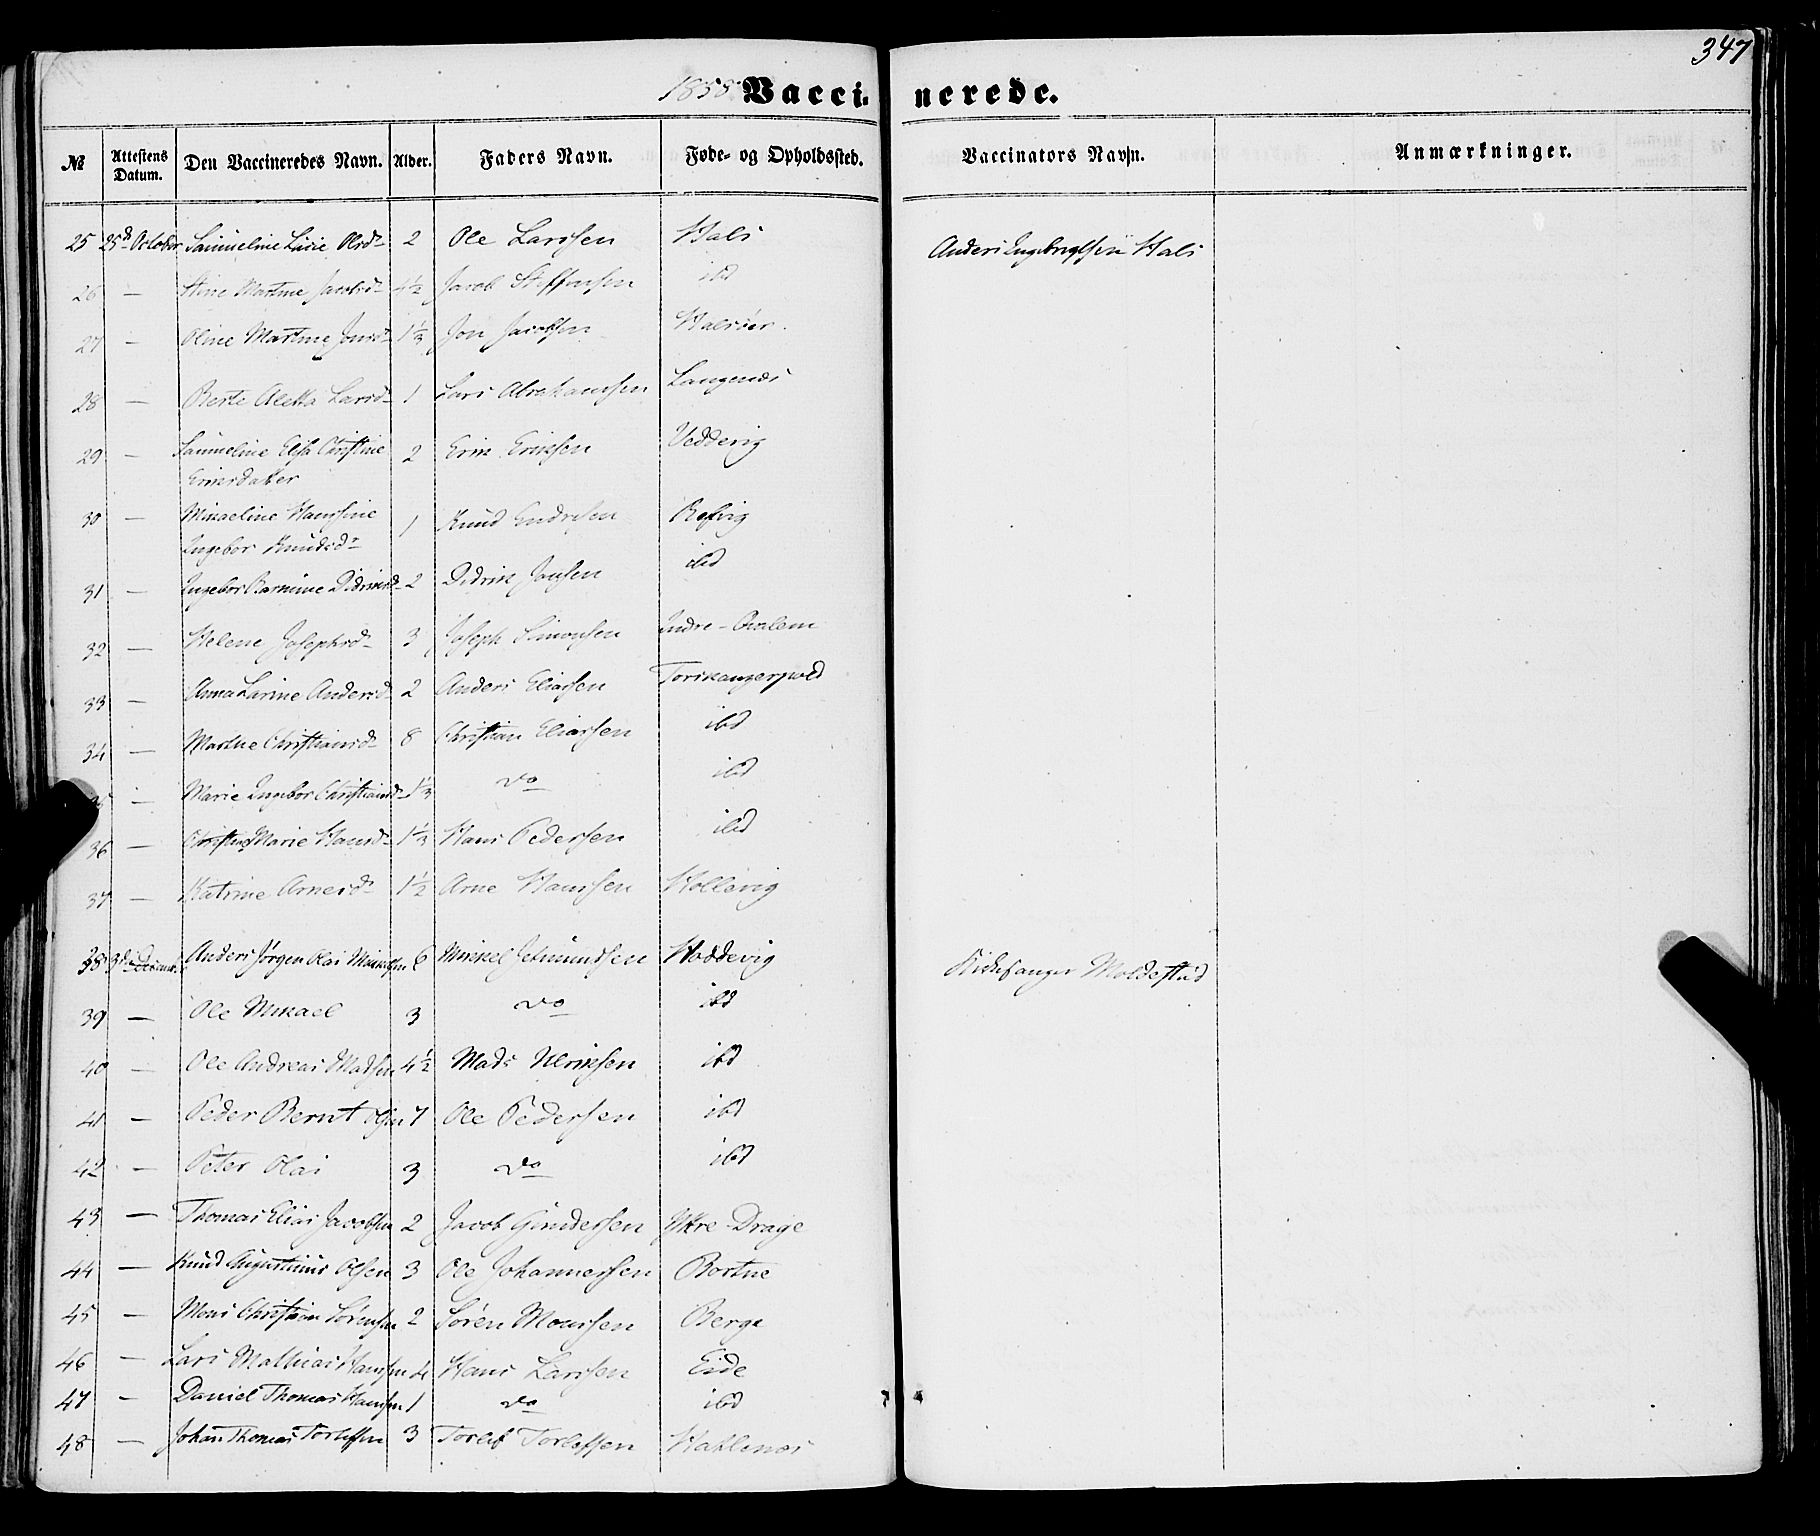 347
1858 Vacci- nerede.
№ Attestens Datum. Den Vaccineredes Navn. Alder. Faders Navn. Føde- og Opholdssted. Vaccinators Navn. Anmærkninger.
25 25d October Samueline Larie Olsd. 2 Ole Larssen Hals Anders Ingebrigtsen Hals
26 — Stine Martine Jacobsd. 4½ Jacob Steffensen ibd
27 — Oline Martine Jonsd. 1⅓ Jon Jacobsen
28 — Berte Aletta Larsd. 1 Lars Abrahamssen Langenæs
29 — Samueline Elisa Christine 2 Erik Eriksen Vedvig
Eriksdatter
30 — Mikaeline Hansine 1 Knud Endresen Refvig
Ingebor Knudsd.
31 — Ingebor Didriksd. 2 Didrik Jonsen ibd
32 — Helene Josephsd. 3 Joseph Simonsen Indre-
33 — Anna Larine Andersd. 2 Anders Eliassen Torskangerpold
34 — Martine Christiansd. 8 Christian Eliassen ibd
— Marie Ingebor Christiansd. 1⅓ do ibd
36 — Marie Hansd. 1⅓ Hans Pedersen ibd
37 — Katrine Arnesd. 1½ Arne Hanssen Hollevig
38 3d Decemb. Anders Jørgen Olai Mikkelsen 6 Mikkel Jetmundsen Hoddevig Kirkesanger Moldestad
39 — Ole Mikael 3 do ibd
40 — Ole Andreas Madsen 4½ Mads Ulriksen ibd
41 — Peder Bernt Olsen 7 Ole Pedersen ibd
42 — Peter Olai 3 do ibd
43 — Thomas Elias Jacobsen 2 Jacob Gundersen Ytre-Drage
44 — Knud Augustinus Olsen 3 Ole Johannessen Bortne
45 — Mons Christian Sørensen 2 Søren Monssen Berge
46 — Lars Mathias Hanssen 4 Hans Larssen Eide
47 — Daniel Thomas Hanssen 1 do ibd
48 — Johan Thomas Torlefsen 3 Torlef Torlefsen